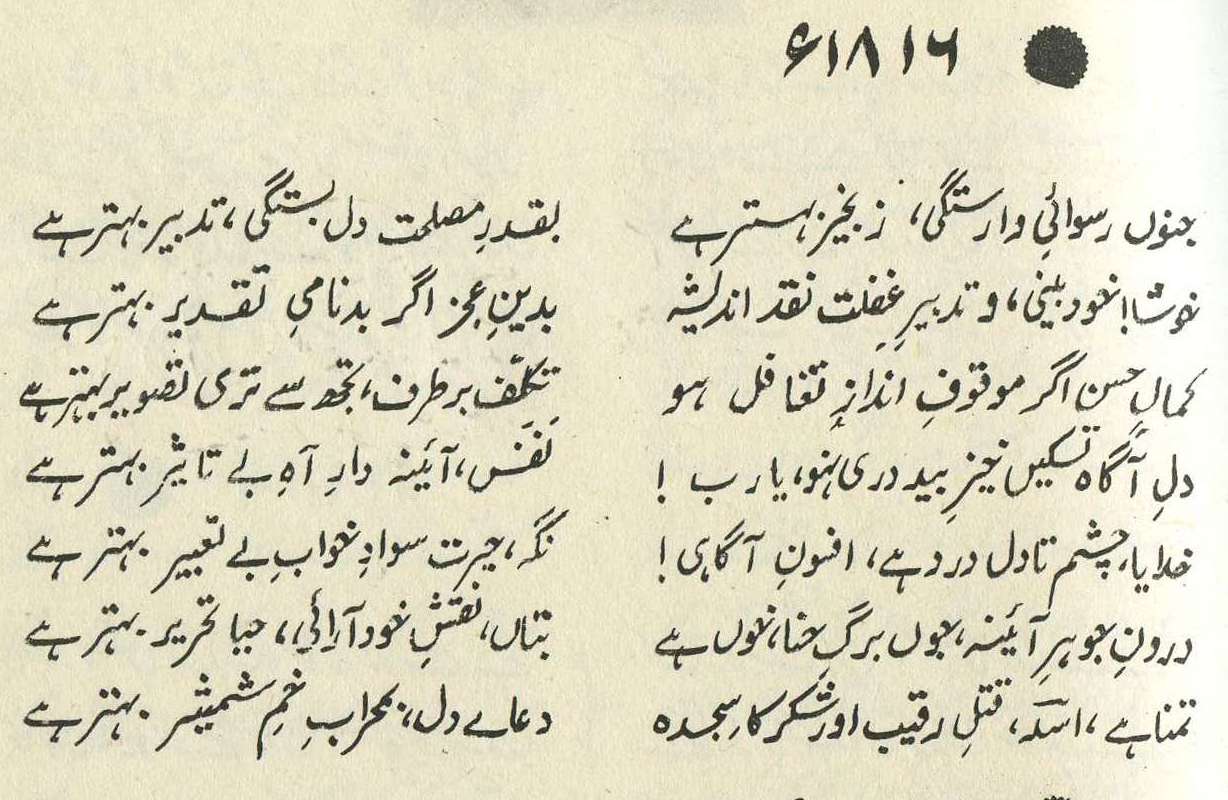 ۱۸۱۶ء
جنوں رسوائیِ وارستگی، زنجیر بہتر ہے بقدرِ مصلحت دل بستگی، تدبیر بہتر ہے
خوشا! خود بینی، و تدبیرِ غفلت نقد اندیشہ بدینِ عجز اگر بدنامیِ تقدیر بہتر ہے
کمالِ حسن اگر موقوفِ اندازِ تغافل ہو تکلّف بر طرف، تجھ سے تری تصویر بہتر ہے
دلِ آگاہ تسکیں خیزِ بیدردی نہو، یارب! نَفَس، آئینہ دارِ آہِ بے تاثیر بہتر ہے
خدایا، چشم تا دل درد ہے، افسونِ آگاہی! نگہ، حیرت سوادِ خوابِ بے تعبیر بہتر ہے
درونِ جوہرِ آئینہ، جوں برگِ حنا، خوں ہے بتاں، نقشِ خود آرائی، حیا تحریر بہتر ہے
تمنا ہے، اسدؔ، قتلِ رقیب اور شکر کا سجدہ دعاے دل، بمحرابِ خمِ شمشیر بہتر ہے